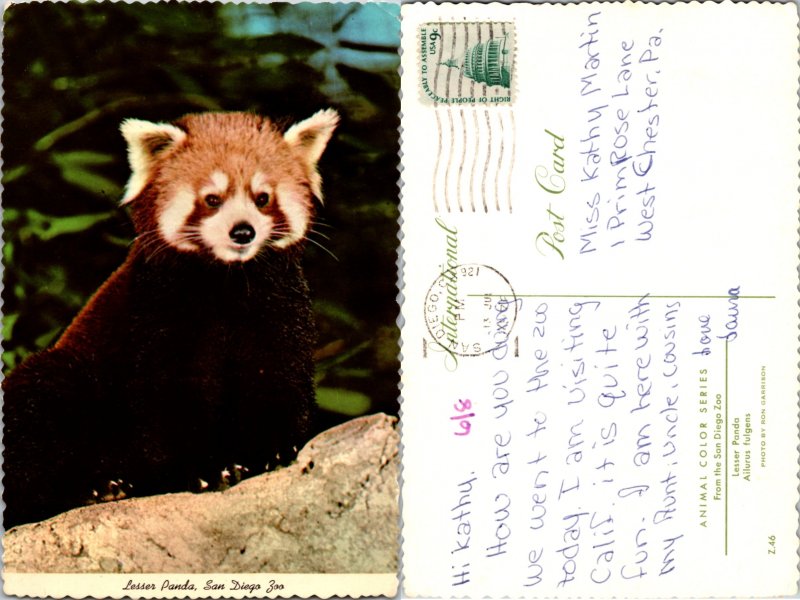 Lesser Panda, San Diego Zoo
RIGHT OF PEOPLE PEACEABLY TO ASSEMBLE
USA 9c
International
Post Card
SAN DIEGO, CA
PM
13 JUN
921
Miss Kathy Martin
1 PrimRose Lane
West Chester, Pa.
Hi Kathy. 6/8
How are you doing
We went to the zoo
today. I am visiting
Calif. it is quite
fun. I am here with
my Aunt, uncle, cousins
love
Laura
ANIMAL COLOR SERIES
From the San Diego Zoo
Lesser Panda
Ailurus fulgens
PHOTO BY RON GARRISON
Z.46